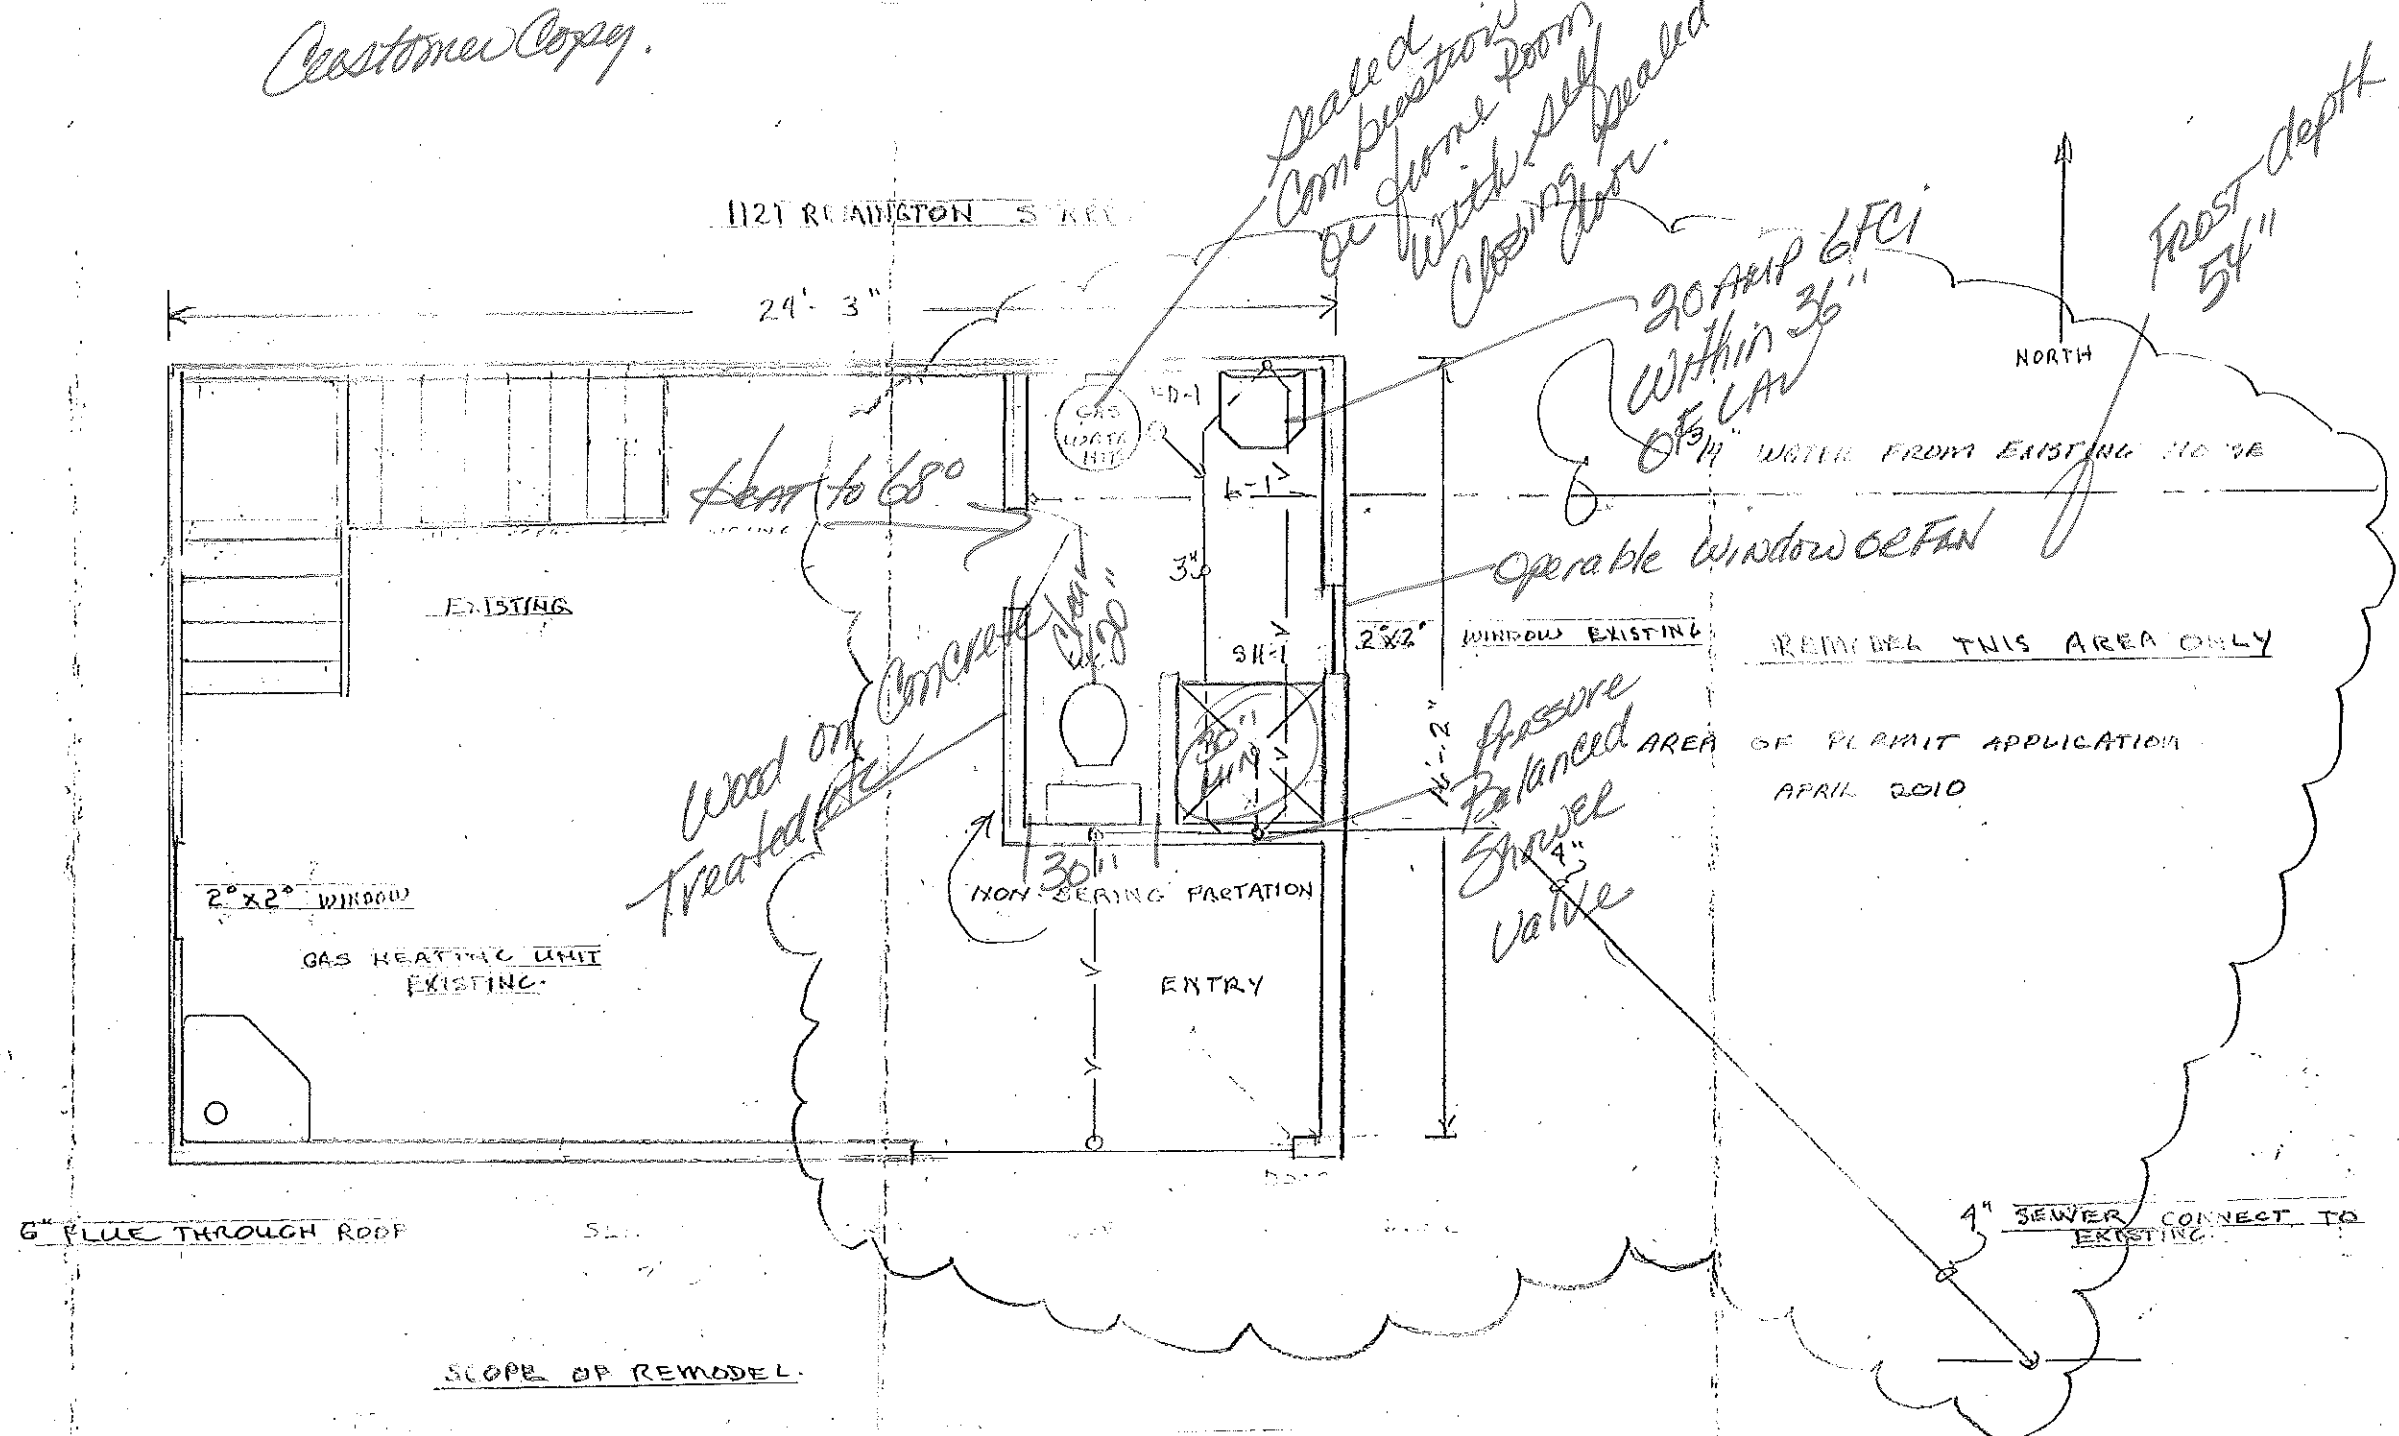 Customer Copy.
Sealed
Combustion
or furnace Room
with self
Closing sealed
door.
Frost depth
54"
1121 REMINGTON STREET
24'-3"
20 AMP GFCI
Within 36"
OF LAV
NORTH
GAS
WATER
HTR
L-1
3/4" WATER FROM EXISTING HOUSE
Heat to 68°
3"
Operable Window or FAN
EXISTING
Clear
SH-1
2°x2° WINDOW EXISTING
REMODEL THIS AREA ONLY
Wood on Concrete
Treated etc
30"
MIN
14'-2"
Pressure
Balanced
Shower
Valve
AREA OF PERMIT APPLICATION
APRIL 2010
30"
4"
NON-BERING PARTATION
2°x2° WINDOW
GAS HEATING UNIT
EXISTING.
ENTRY
6" FLUE THROUGH ROOF
4" SEWER CONNECT TO
EXISTING.
SCOPE OF REMODEL.